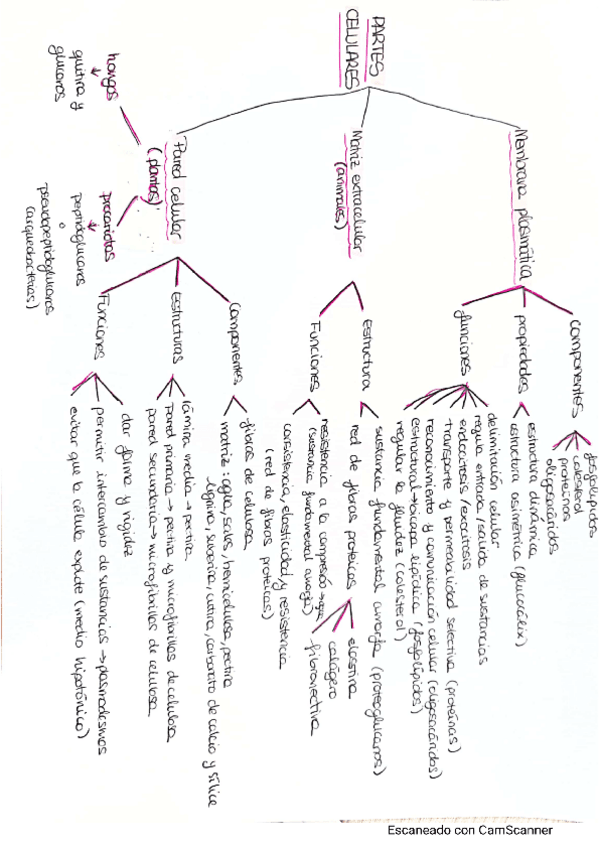 PARTES
CELULARES
Membrana plasmática
componentes
fosfolípidos
colesterol
proteínas
oligosacáridos
propiedades
estructura dinámica
estructura asimétrica (glucocálix)
funciones
delimitación celular
regula entrada/salida de sustancias
endocitosis/exocitosis
transporte y permeabilidad selectiva (proteínas)
reconocimiento y comunicación celular (oligosacáridos)
estructural → bicapa lipídica (fosfolípidos)
regular la fluidez (colesterol)
Matriz extracelular
(animales)
estructura
sustancia fundamental amorfa (proteoglucanos)
red de fibras proteicas
elastina
colágeno
fibronectina
Funciones
resistencia a la compresión →
(sustancia fundamental amorfa)
consistencia, elasticidad y resistencia
(red de fibras proteicas)
Pared celular
(plantas)
componentes
fibras de celulosa
matriz: agua, sales, hemicelulosa, pectina
lignina, suberina, cutina, carbonato de calcio y sílice
estructuras
lámina media → pectina
pared primaria → pectina y microfibrillas de celulosa
pared secundaria → microfibrillas de celulosa
Funciones
dar forma y rigidez
permitir intercambio de sustancias → plasmodesmos
evitar que la célula explote (medio hipotónico)
procariotas
peptidoglucanos
o
pseudopeptidoglucanos
(arqueobacterias)
hongos
quitina y
glucanos
Escaneado con CamScanner